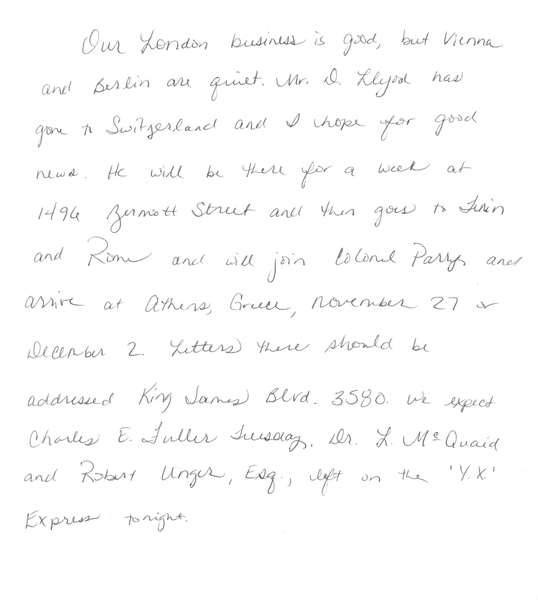 Our London business is good, but Vienna
and Berlin are quiet. Mr. D. Llyod has
gone to Switzerland and I hope for good
news. He will be there for a week at
1496 Zermott Street and then goes to Turin
and Rome and will join Colonel Parry and
arrive at Athens, Greece, November 27 or
December 2. Letters there should be
addressed King James Blvd. 3580. We expect
Charles E. Fuller Tuesday. Dr. L. McQuaid
and Robert Unger, Esq., left on the 'Y.X.'
Express tonight.